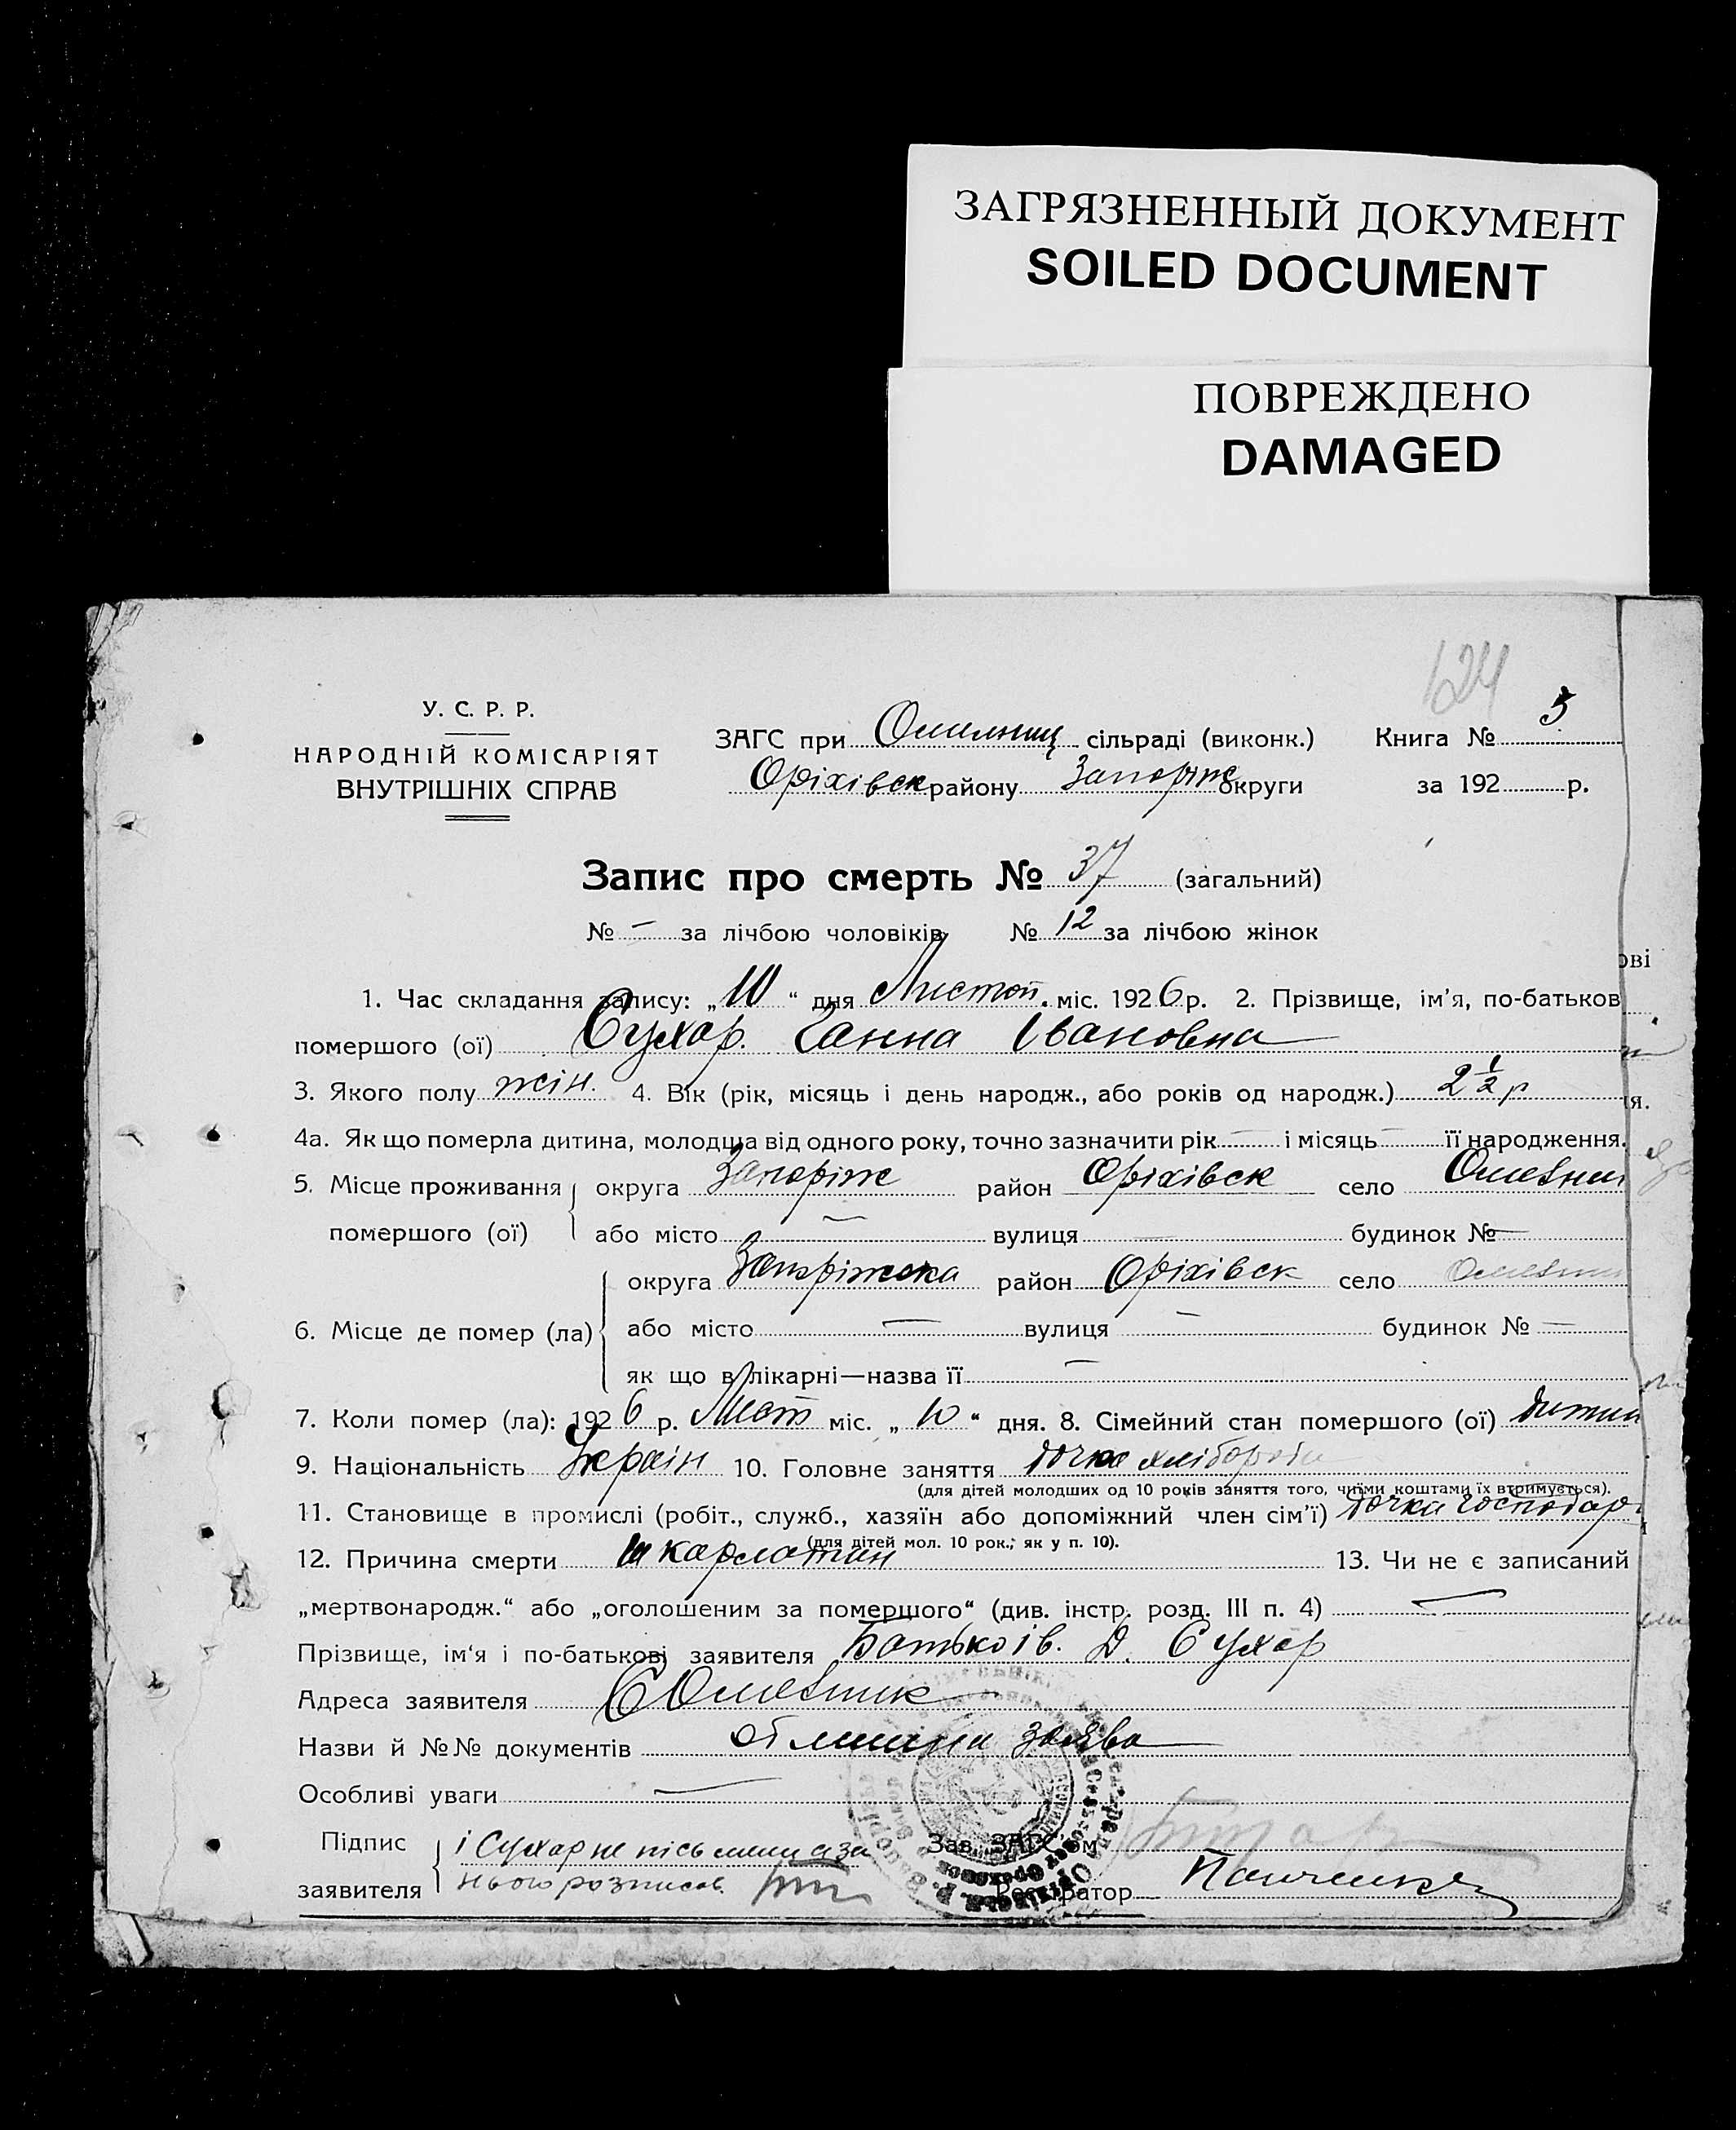 ЗАГРЯЗНЕННЫЙ ДОКУМЕНТ
SOILED DOCUMENT
ПОВРЕЖДЕНО
DAMAGED
124
У. С. Р. Р.
НАРОДНІЙ КОМІСАРІЯТ
ВНУТРІШНІХ СПРАВ
ЗАГС при сільраді (виконк.) Книга № 5
Оріхівск району Запоріж округи за 192 р.
Запис про смерть № 37 (загальний)
№ — за лічбою чоловіків № 12 за лічбою жінок
1. Час складання запису: „10“ дня Листоп. міс. 1926 р. 2. Прізвище, ім'я, по-батьков
помершого (ої) Сухар. Ганна Івановна
3. Якого полу жін. 4. Вік (рік, місяць і день народж., або років од народж.) 2 1/2 р
4а. Як що померла дитина, молодща від одного року, точно зазначити рік — і місяць — її народження.
5. Місце проживання помершого (ої) округа Запоріж район Оріхівск село
або місто — вулиця — будинок № —
6. Місце де помер (ла) округа Запоріжска район Оріхівск село
або місто — вулиця — будинок № —
як що в лікарні—назва її —
7. Коли помер (ла): 1926 р. Лист міс. „10“ дня. 8. Сімейний стан помершого (ої) дитин
9. Національність Україн 10. Головне заняття дочка хлібороба
(для дітей молодших од 10 років заняття того, чиїми коштами їх втримується).
11. Становище в промислі (робіт., служб., хазяїн або допоміжний член сім'ї) дочка господар
(для дітей мол. 10 рок.; як у п. 10).
12. Причина смерти шкарлатин 13. Чи не є записаний
„мертвонародж.“ або „оголошеним за помершого“ (див. інстр. розд. III п. 4) —
Прізвище, ім'я і по-батькові заявителя Батько Ів. Д. Сухар
Адреса заявителя С
Назви й №№ документів заява
Особливі уваги —
Підпис заявителя і Сухар не письмен а за
нього розписав
Зав. ЗАГС'ом
Реєстратор Панченко